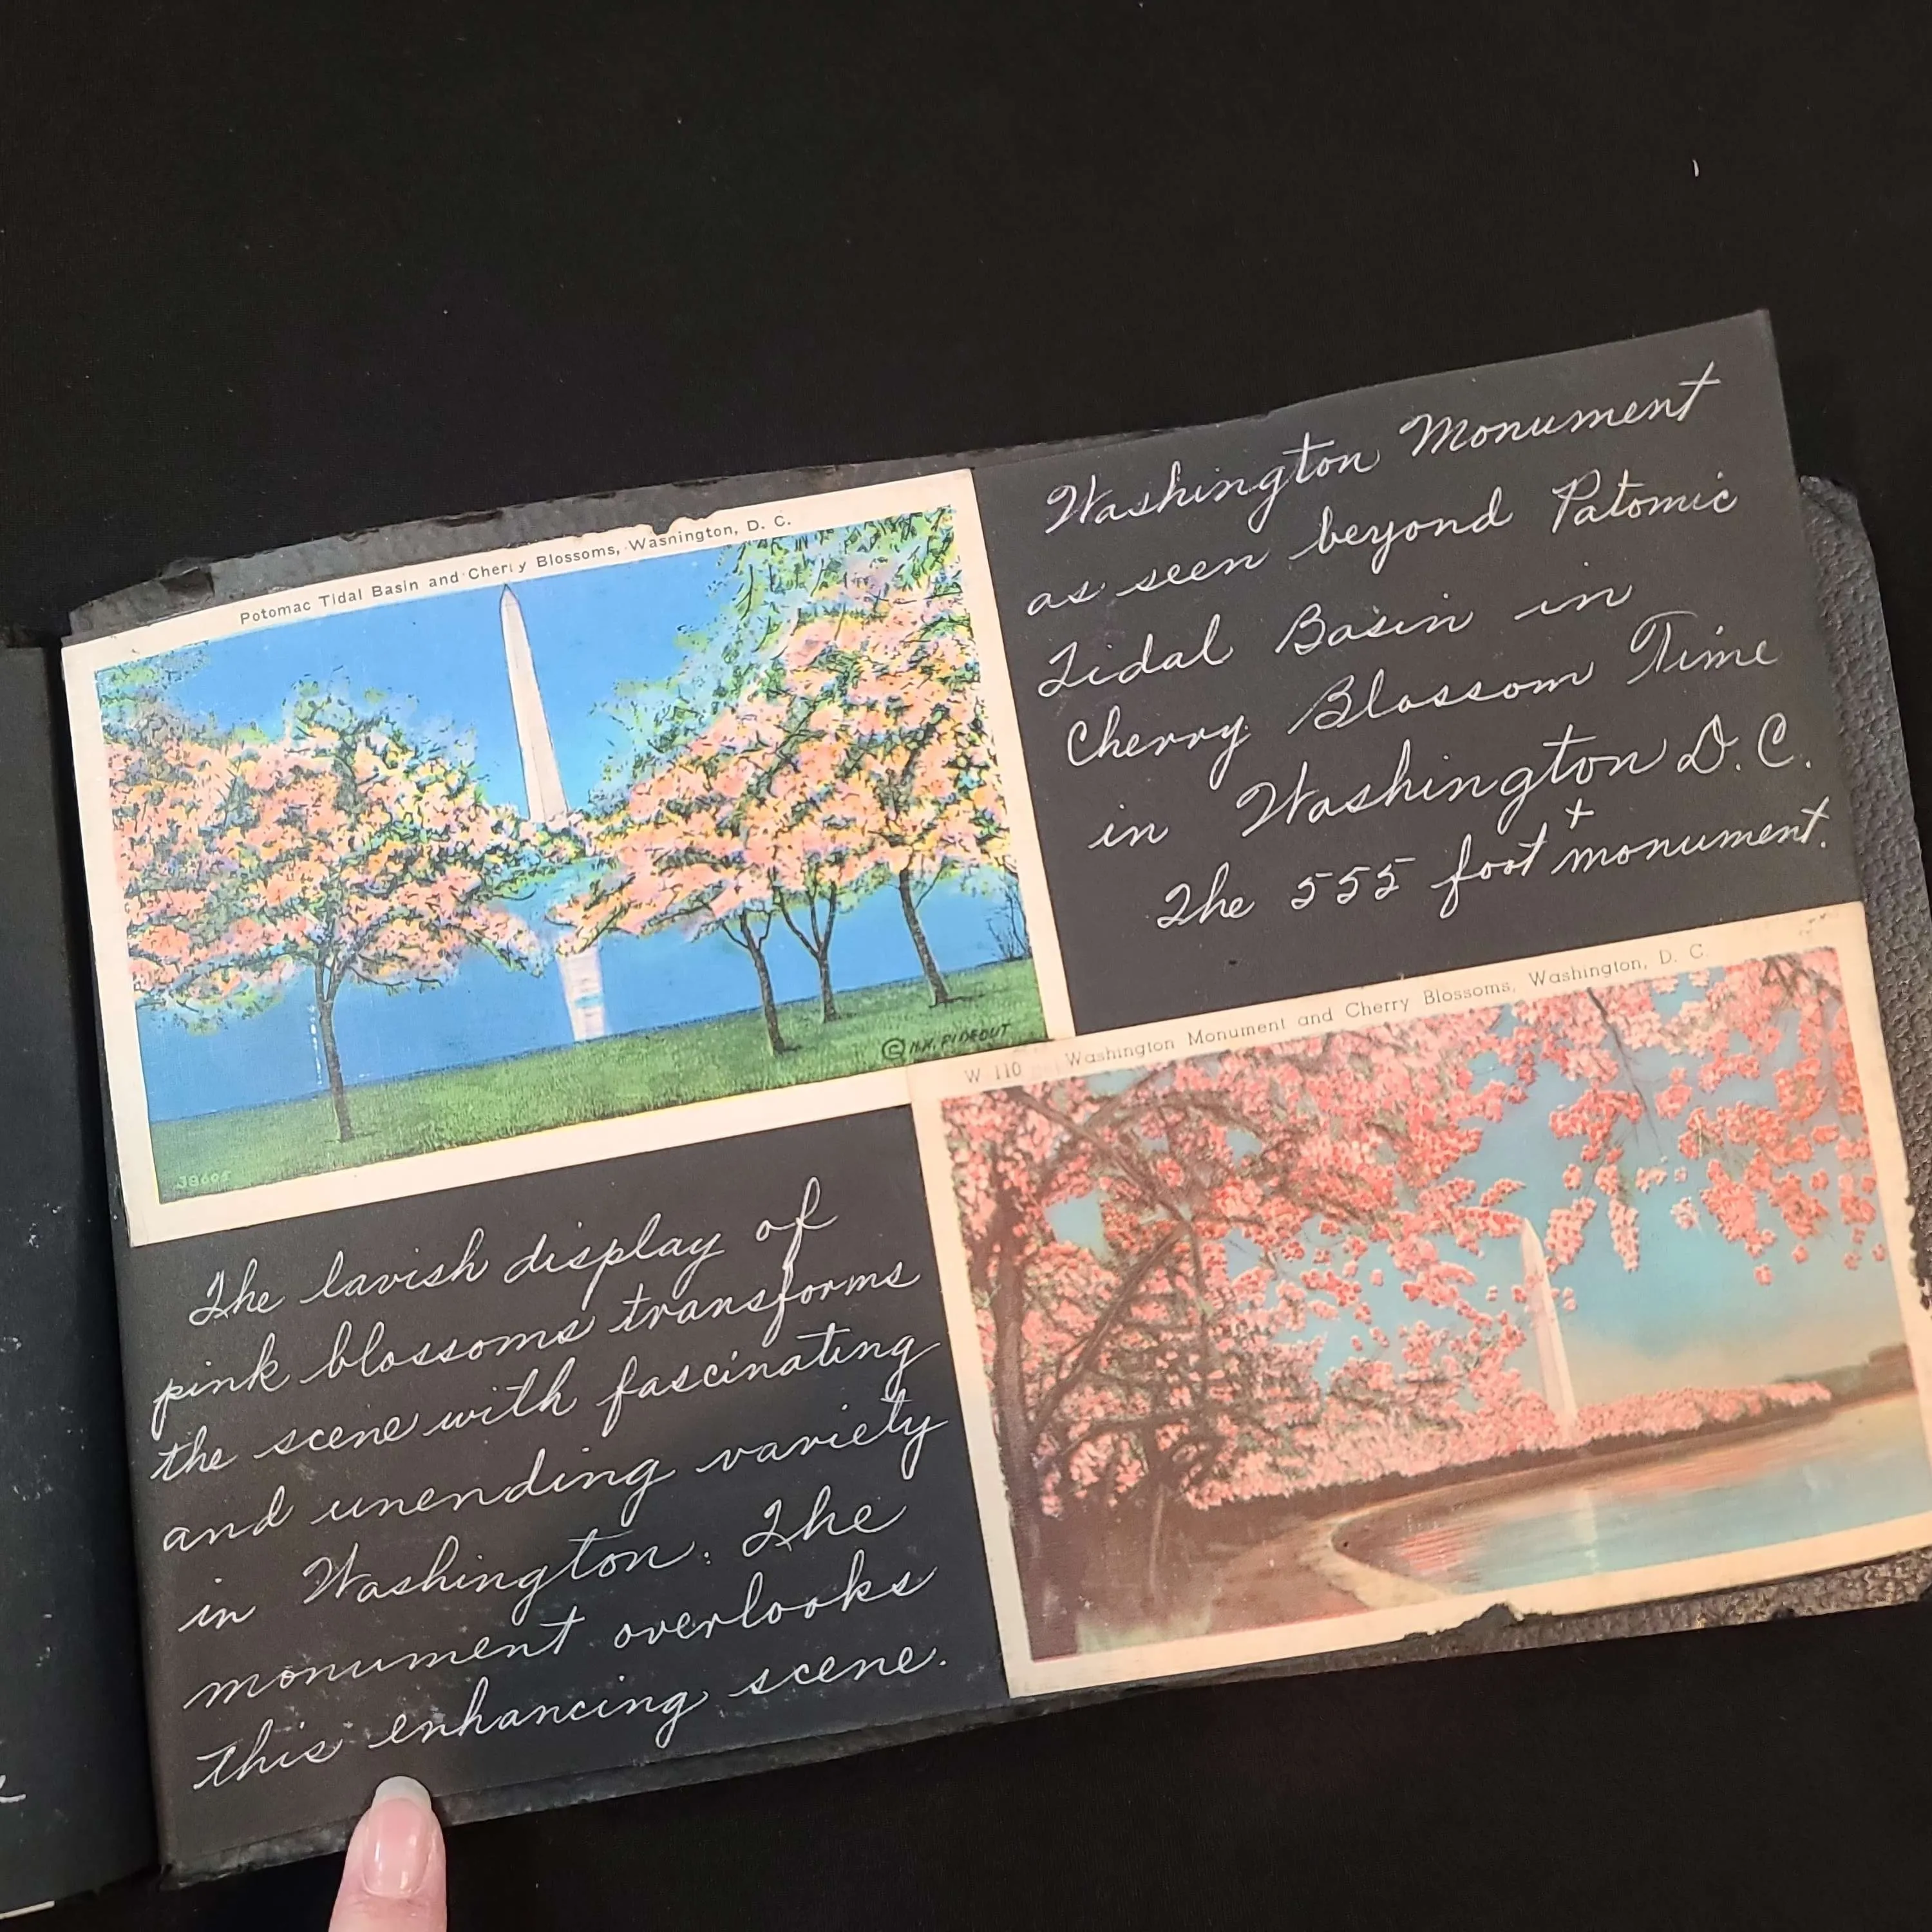 Potomac Tidal Basin and Cherry Blossoms, Washington, D. C.
38605
Washington Monument
as seen beyond Patomic
Tidal Basin in
Cherry Blossom Time
in Washington D.C.
The 555 foot + monument.
The lavish display of
pink blossoms transforms
the scene with fascinating
and unending variety
in Washington. The
monument overlooks
this enhancing scene.
W 110 Washington Monument and Cherry Blossoms, Washington, D. C.